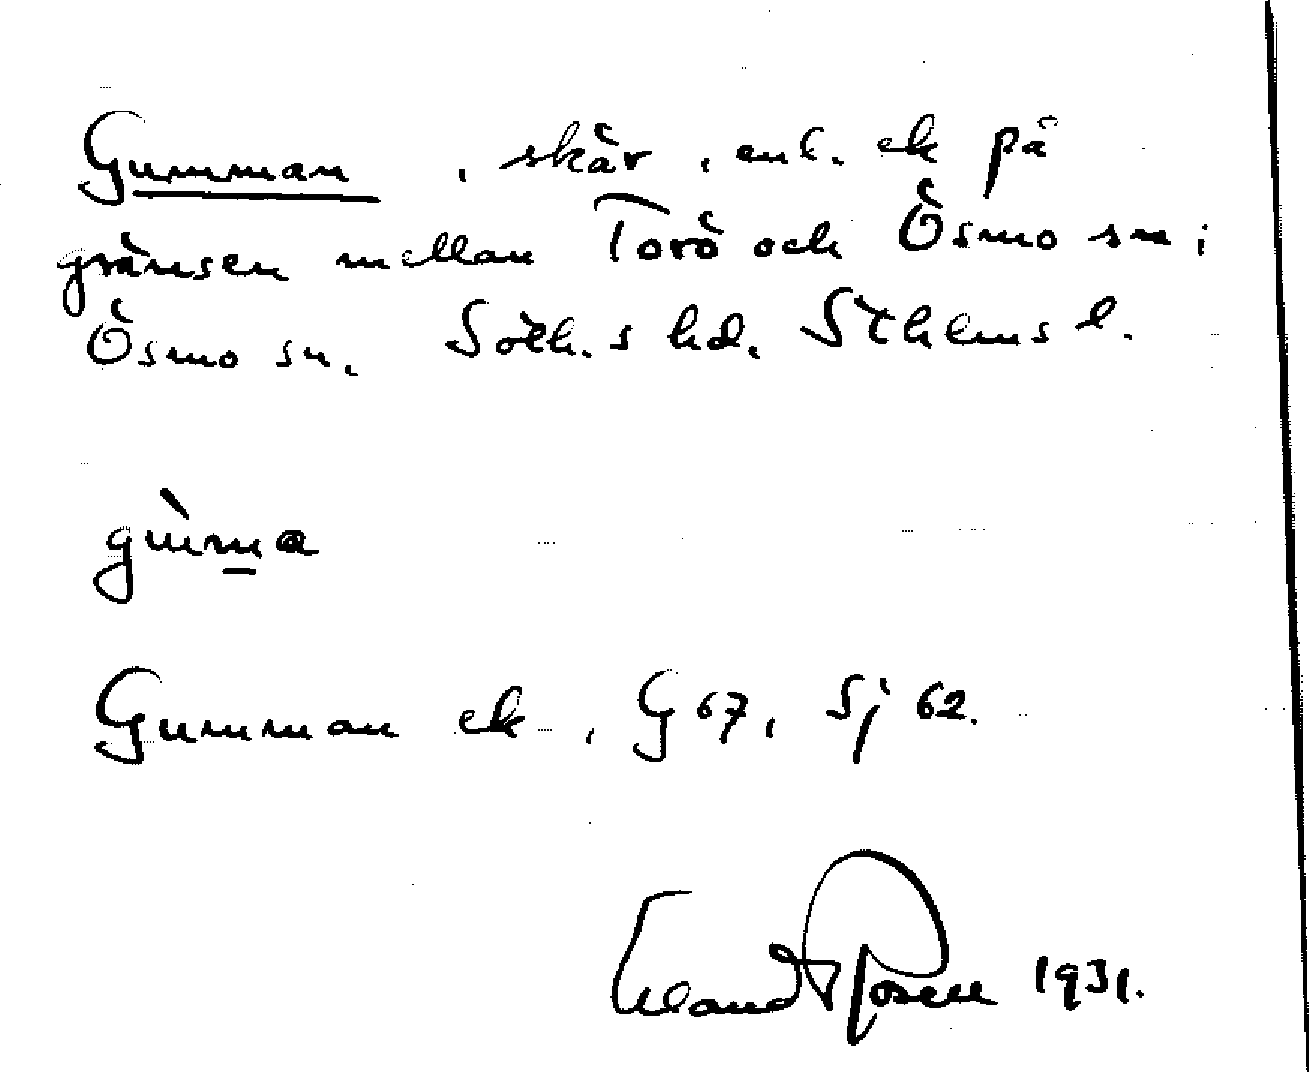 Gumman, skär, enl. ek på
gränsen mellan Torö och Ösmo sn;
Ösmo sn. Soth.s hd. Sthlms l.
gùma
Gumman ek, G 67, Sj 62.
Rosell 1931.